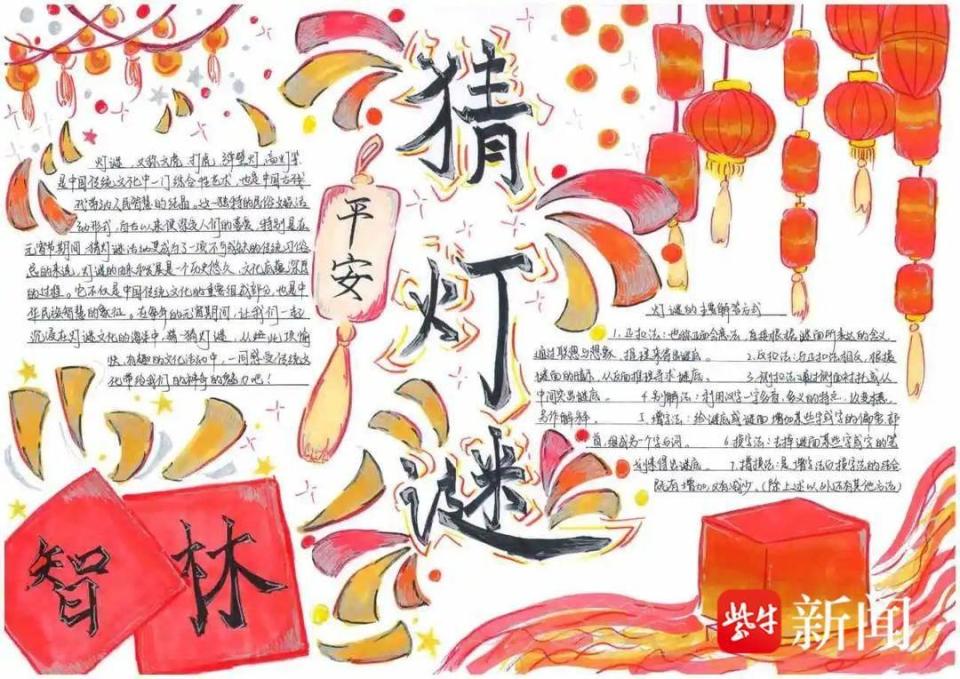 猜灯谜
平安
灯谜，又称文虎、打虎、弹壁灯、商灯等
是中国传统文化中一门综合性艺术，也是中国古代
劳动人民智慧的结晶。这一独特的民俗文娱活
动形式，自古以来便深受人们的喜爱，特别是在
元宵节期间，猜灯谜活动更成为了一项不可或缺的传统习俗
总的来说，灯谜的由来和发展是一个历史悠久、文化底蕴深厚
的过程。它不仅是中国传统文化的重要组成部分，也是中
华民族智慧的象征。在每年的元宵期间，让我们一起
沉浸在灯谜文化的海洋中，猜一猜灯谜，从此项愉
快、有趣的文化活动中，一同感受传统文
化带给我们的神奇的魅力吧！
灯谜的主要解答方式
1.正扣法：也称正面会意法，直接根据谜面所表达的含义
通过联想与想象，推理来得出谜底。 2.反扣法：与正扣法相反，根据
谜面的暗示，从反面推理寻求谜底。 3.侧扣法：通过侧面衬托或从
中间突出谜底。 4.别解法：利用汉字一字多音、多义的特点
另作解释。 5.增字法：给谜底或谜面增加某些字或字的偏旁部
首，组成另一个字或词。 6.损字法：去掉谜面某些字或字的笔
划来得出谜底。 7.增损法：是增字法和损字法的结合
既有增加，又有减少。（除上述以外还有其他方法）
智林
紫牛新闻